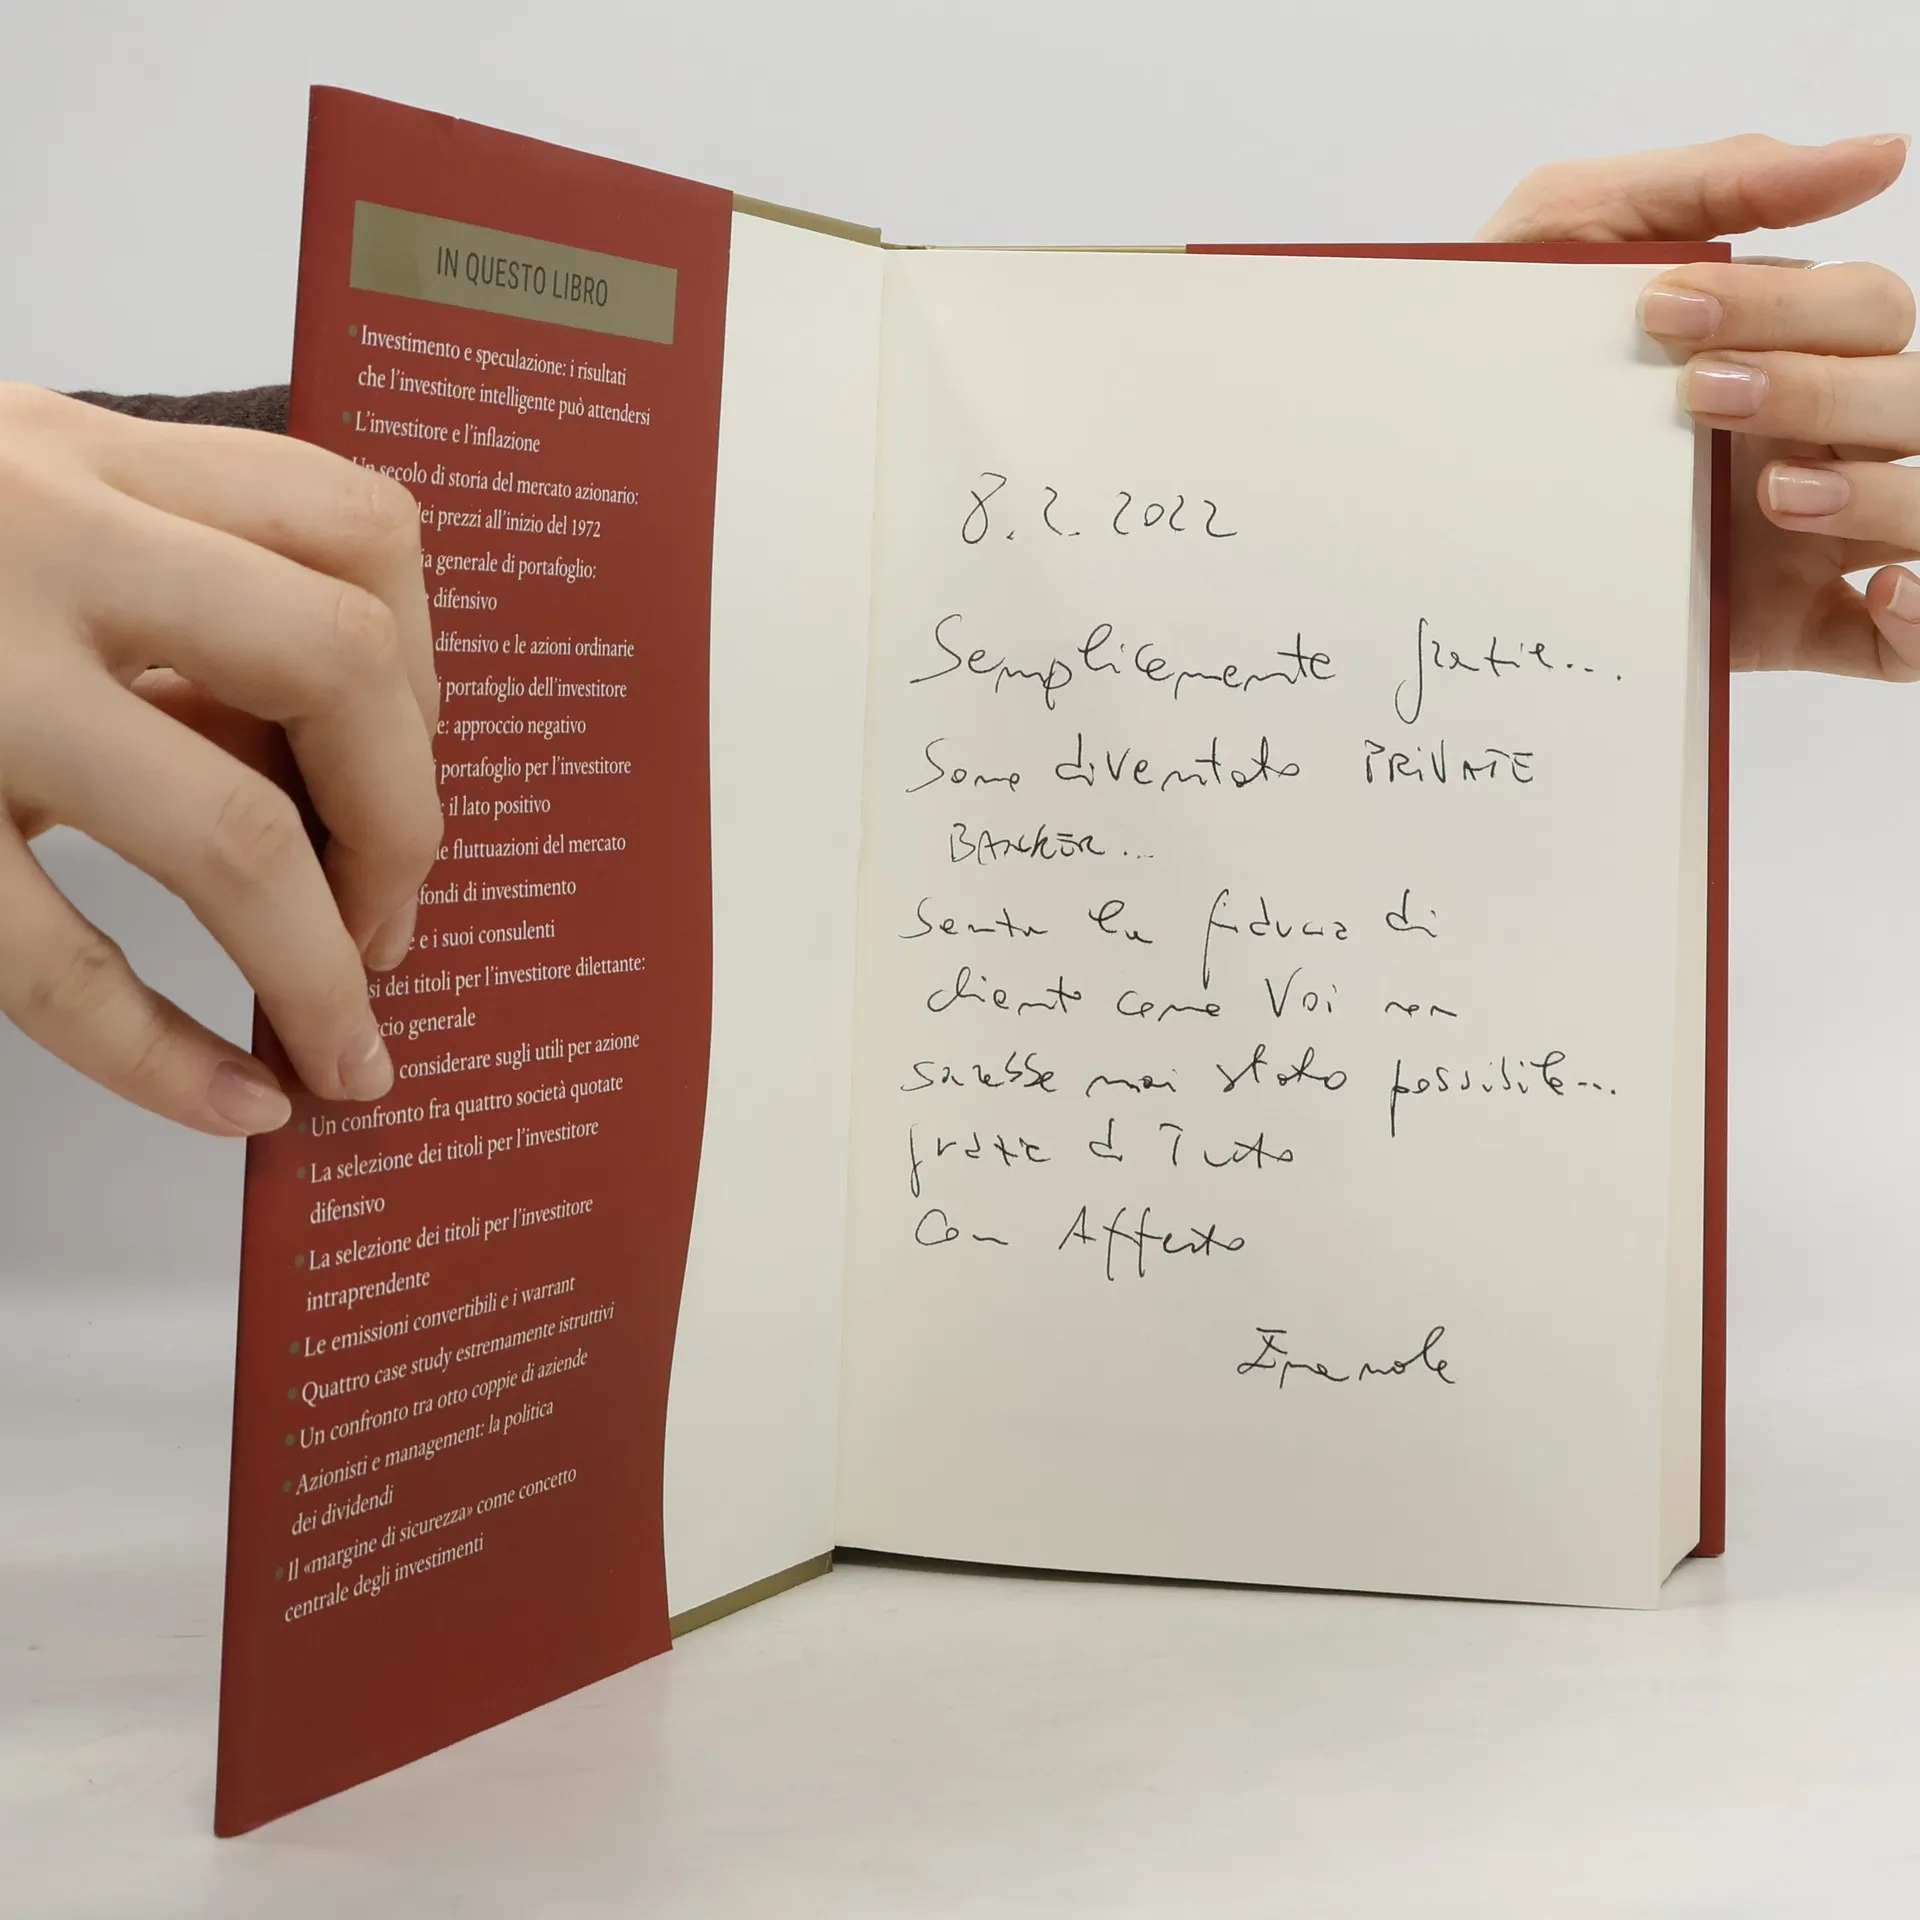 IN QUESTO LIBRO
Investimento e speculazione: i risultati
che l'investitore intelligente può attendersi
L'investitore e l'inflazione
secolo di storia del mercato azionario:
prezzi all'inizio del 1972
generale di portafoglio:
difensivo
difensivo e le azioni ordinarie
portafoglio dell'investitore
approccio negativo
portafoglio per l'investitore
il lato positivo
fluttuazioni del mercato
fondi di investimento
e i suoi consulenti
dei titoli per l'investitore dilettante:
generale
considerare sugli utili per azione
Un confronto fra quattro società quotate
La selezione dei titoli per l'investitore
difensivo
La selezione dei titoli per l'investitore
intraprendente
Le emissioni convertibili e i warrant
Quattro case study estremamente istruttivi
Un confronto tra otto coppie di aziende
Azionisti e management: la politica
dei dividendi
Il «margine di sicurezza» come concetto
centrale degli investimenti
8.2.2022
Semplicemente grazie...
Sono diventato PRIVATE
BANKER...
Senza la fiducia di
cliente come Voi non
sarebbe mai stato possibile...
grazie di Tutto
Con Affetto